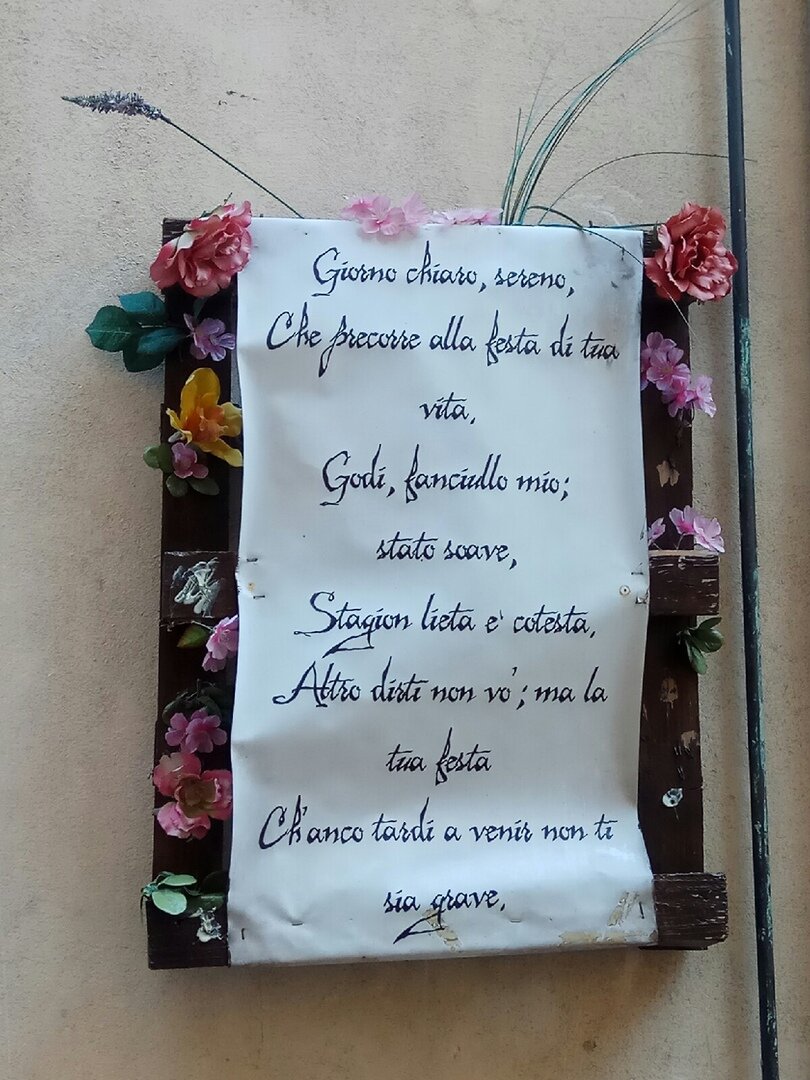 Giorno chiaro, sereno,
Che precorre alla festa di tua
vita,
Godi, fanciullo mio;
stato soave,
Stagion lieta e' cotesta,
Altro dirti non vo'; ma la
tua festa
Ch'anco tardi a venir non ti
sia grave,